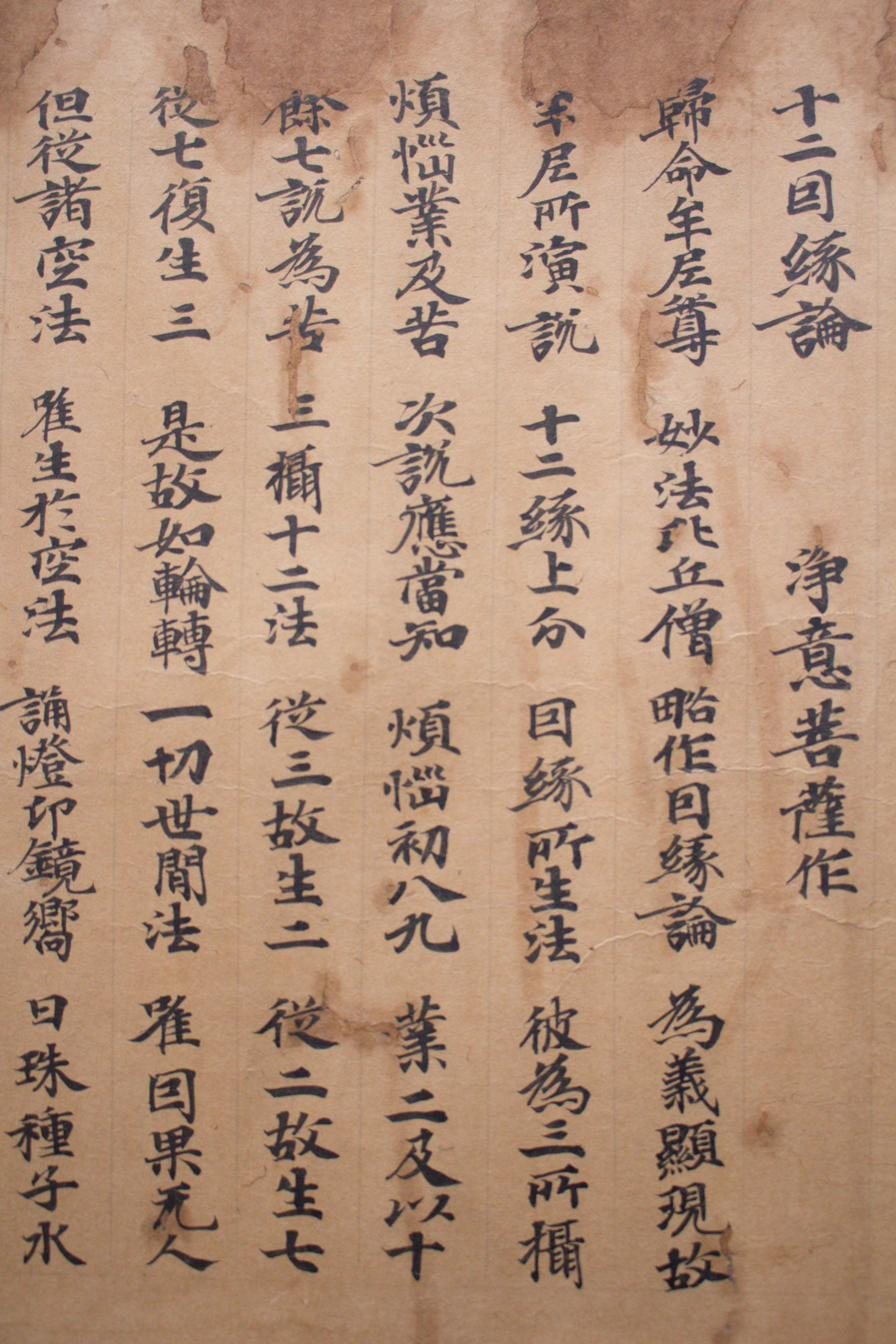 十二因緣論 淨意菩薩作
歸命牟尼尊 妙法比丘僧 略作因緣論 為義顯現故
牟尼所演說 十二緣上分 因緣所生法 彼為三所攝
煩惱業及苦 次說應當知 煩惱初八九 業二及以十
餘七說為苦 三攝十二法 從三故生二 從二故生七
從七復生三 是故如輪轉 一切世間法 唯因果无人
但從諸空法 唯生於空法 誦燈印鏡響 日珠種子水